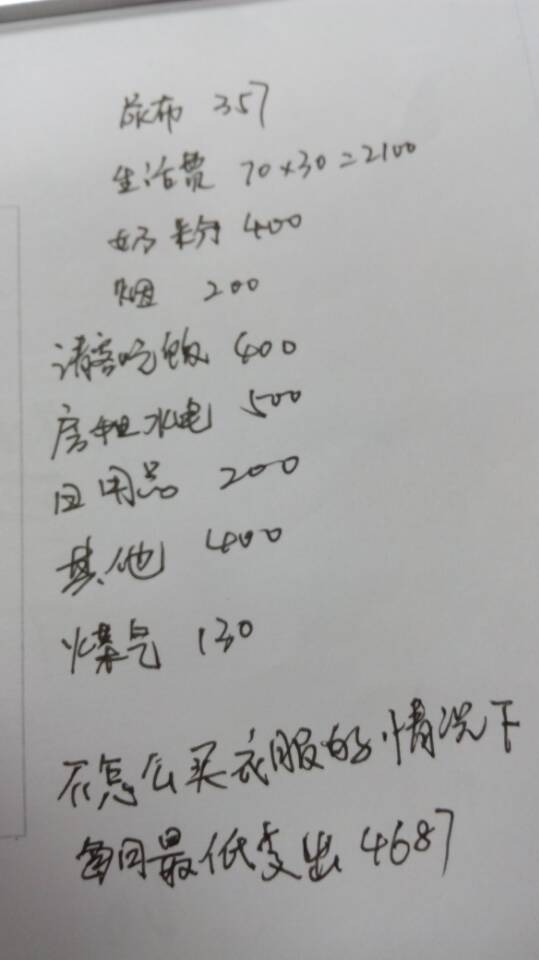 尿布 357
生活费 70×30=2100
奶粉 400
烟 200
请客吃饭 400
房租水电 500
日用品 200
其他 400
煤气 130
不怎么买衣服的情况下
每月最低支出 4687